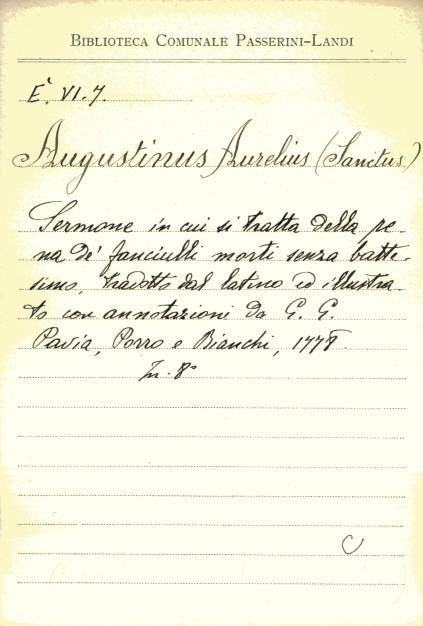 BIBLIOTECA COMUNALE PASSERINI-LANDI
E. VI. 7.
Augustinus Aurelius (Sanctus)
Sermone in cui si tratta della pe-
na de' fanciulli morti senza batte-
simo, tradotto dal latino ed illustra-
to con annotazioni da G. G.
Pavia, Porro e Bianchi, 1778.
In. 8°
C